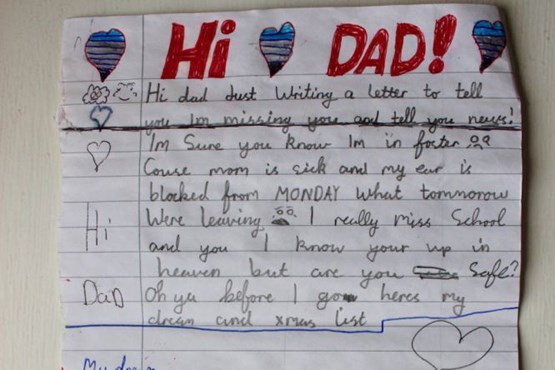 Hi DAD!
Hi dad Just Writing a letter to tell
you Im missing you and tell you news!
Im Sure you know Im in foster
Couse mom is sick and my ear is
blocked from MONDAY What tommorow
Were leaving I really miss School
and you I know your up in
heaven but are you Safe?
Oh ya before I go heres my
dream and xmas list
Hi
DaD
My